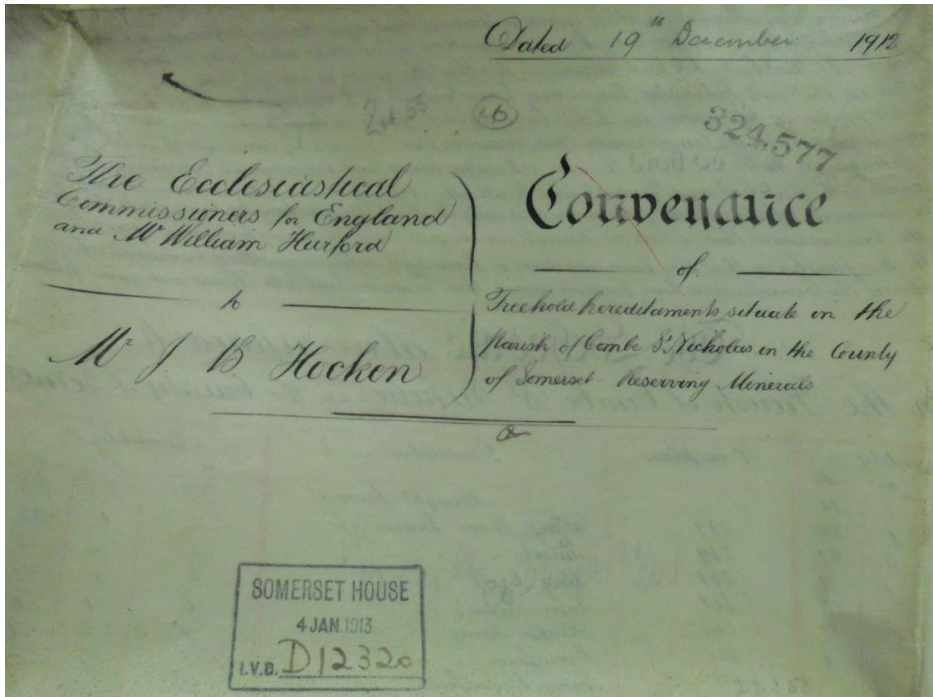 Dated 19th December 1912
26
324,577
The Ecclesiastical
Commissioners for England
and Mr William Hurford
to
Mr J B Hocken
Conveyance
of
Freehold hereditaments situate in the
Parish of Combe St Nicholas in the County
of Somerset Reserving Minerals
SOMERSET HOUSE
4 JAN. 1913
I.V.D. D12320